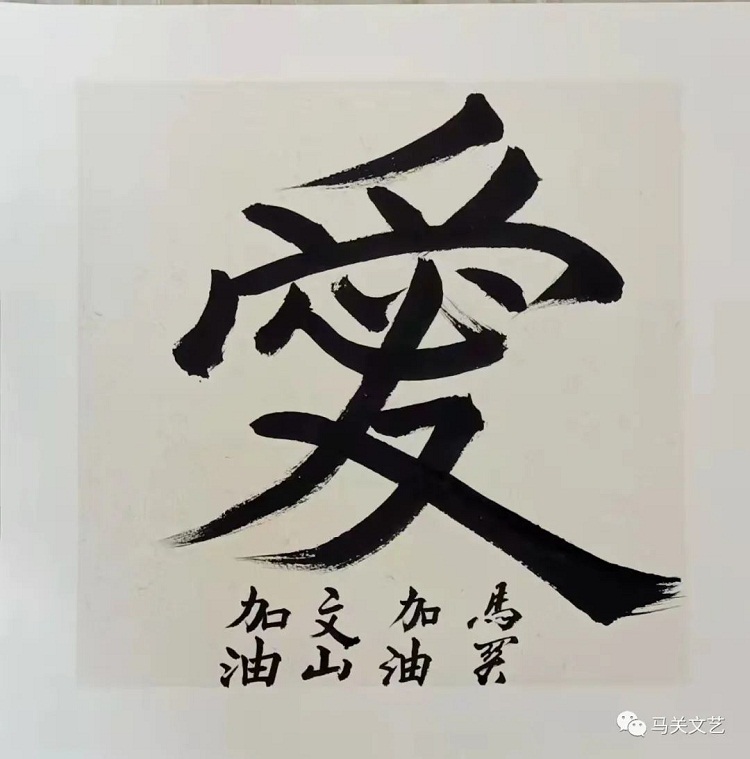 愛
馬關
加油
文山
加油
马关文艺